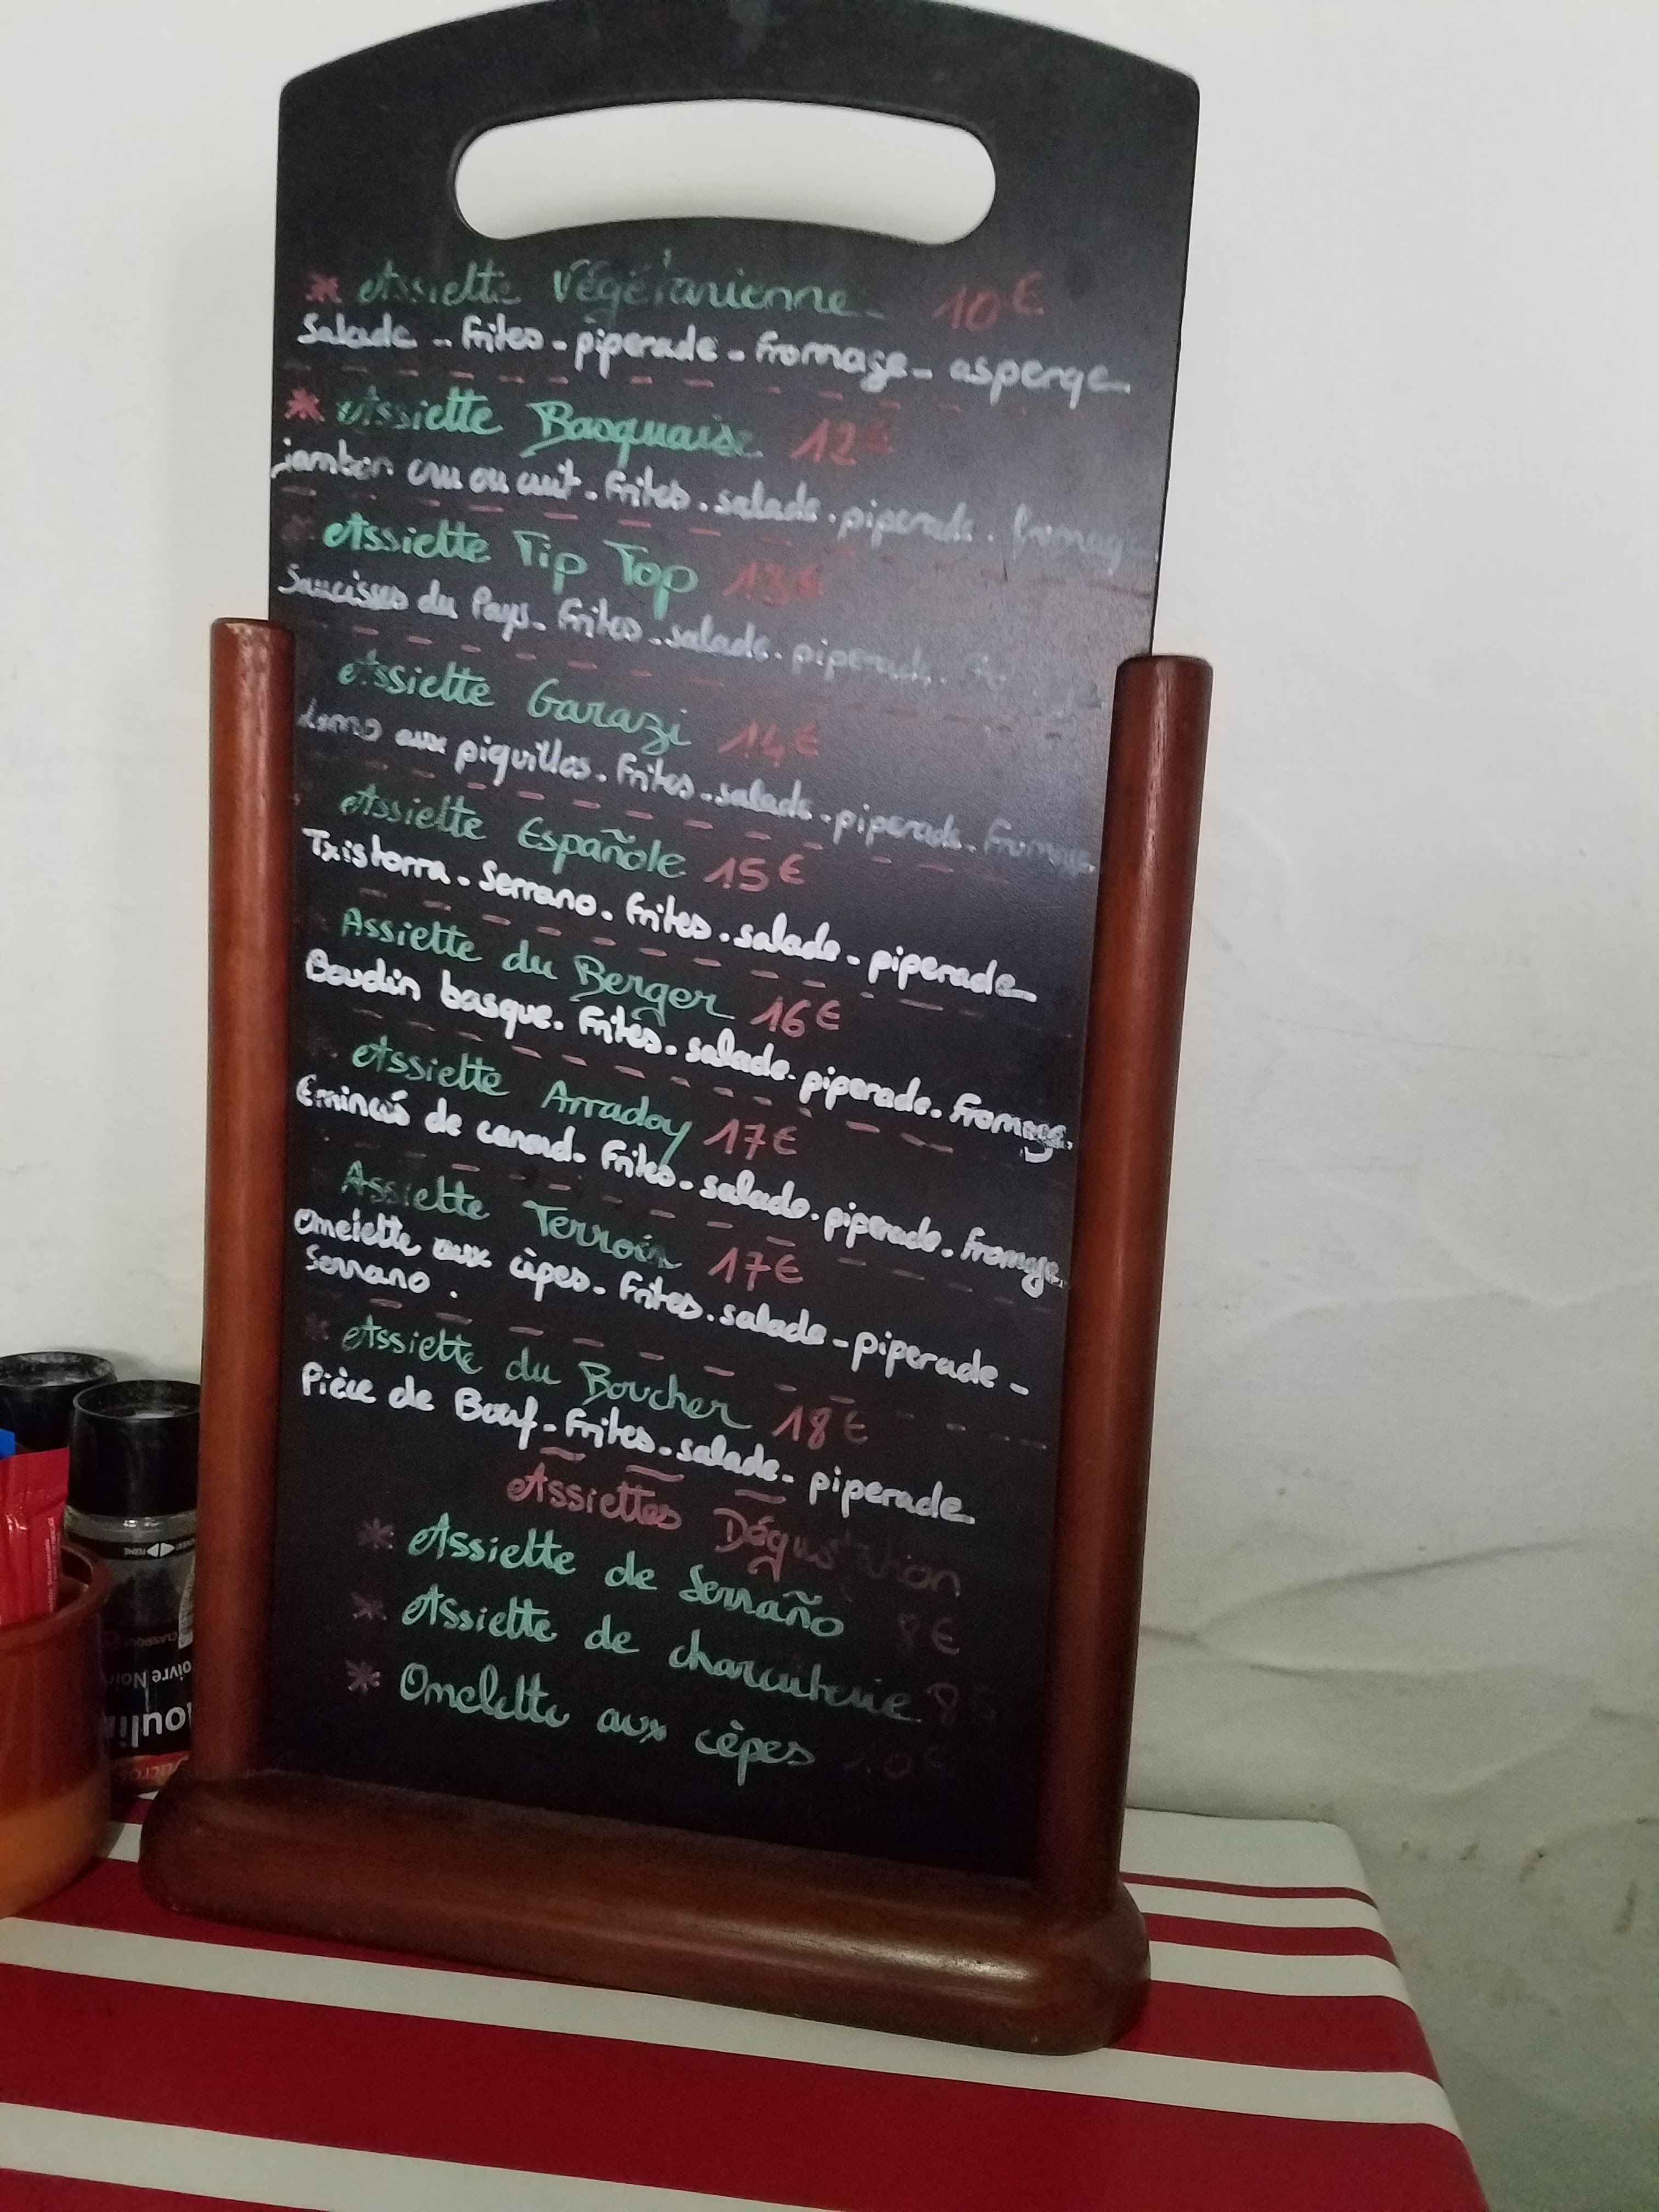 * Assiette Végétarienne - 10€
Salade - Frites - piperade - Fromage - asperge
* Assiette Basquaise 12€
jambon cru ou cuit - Frites - salade - piperade - fromage
* Assiette Tip Top 13€
Saucisses du Pays - Frites - salade - piperade -
Assiette Garazi 14€
Lomo aux piquillos - Frites - salade - piperade - Fromage
Assiette Españole 15€
Txistorra - Serrano - Frites - salade - piperade
Assiette du Berger 16€
Boudin basque - Frites - salade - piperade - Fromage
Assiette Arradoy 17€
Emincés de canard - Frites - salade - piperade - Fromage
Assiette Terroir 17€
Omelette aux cèpes - Frites - salade - piperade -
Serrano .
* Assiette du Boucher 18€
Pièce de Bœuf - Frites - salade - piperade
Assiettes Dégustation
* Assiette de Serraño 8€
* Assiette de charcuterie 8€
* Omelette aux cèpes 10€
FERMÉ
CLASSIQUE
Poivre Noir
Moulin
Ducros